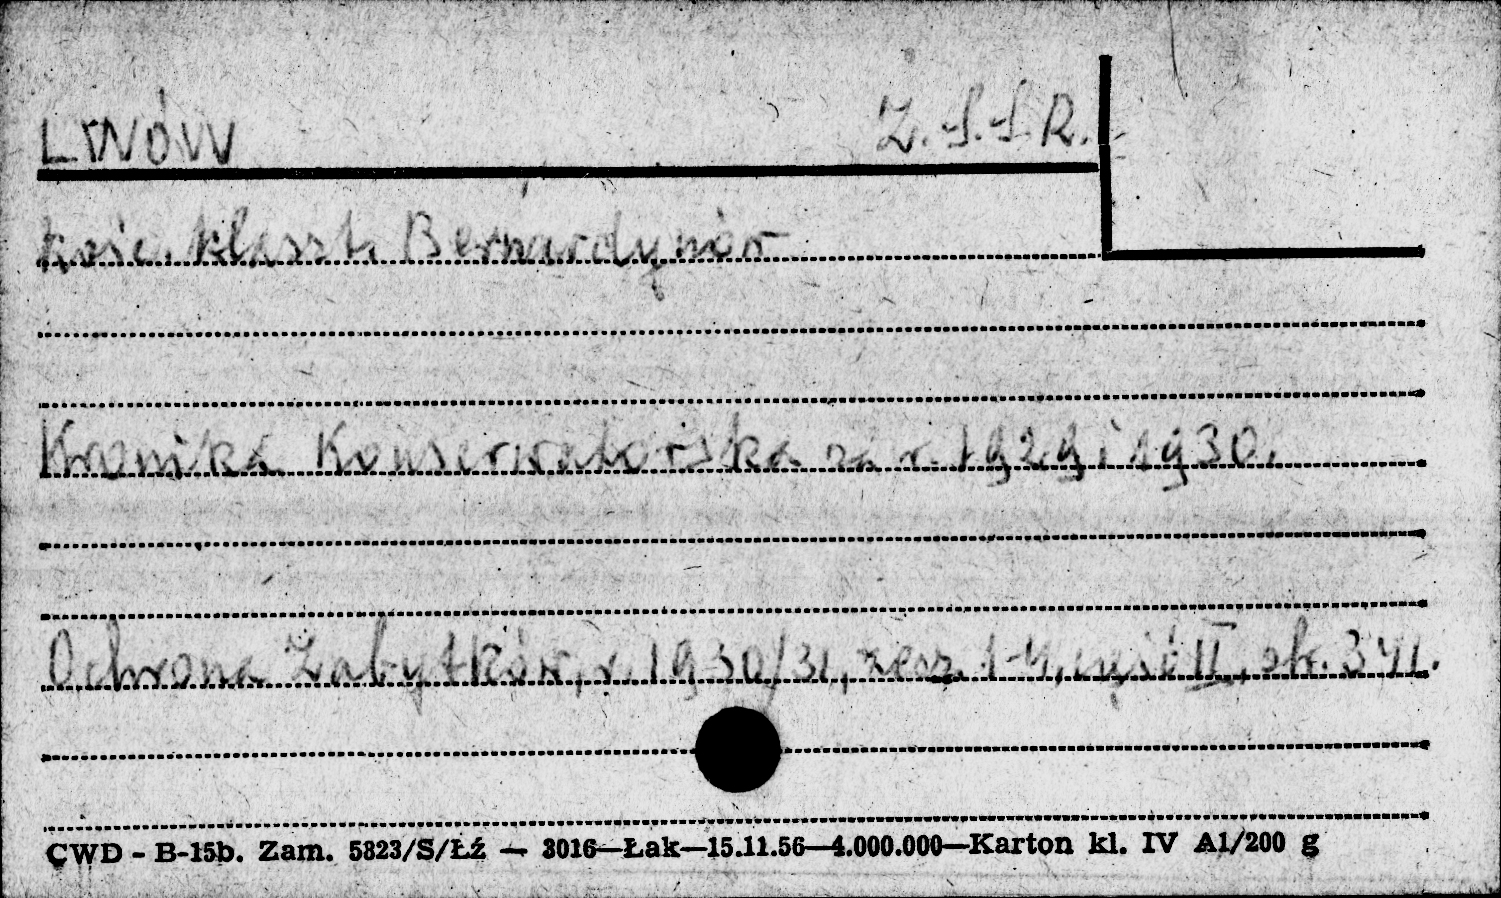 LWÓW Z.S.S.R.
kośc. klaszt. Bernardynów
Kronika Konserwatorska za r. 1929 i 1930.
Ochrona Zabytków, r. 1930/31, zesz. 1-4, część II, str. 341.
CWD - B-15b. Zam. 5823/S/Łź — 3016—Łak—15.11.56—4.000.000—Karton kl. IV A1/200 g